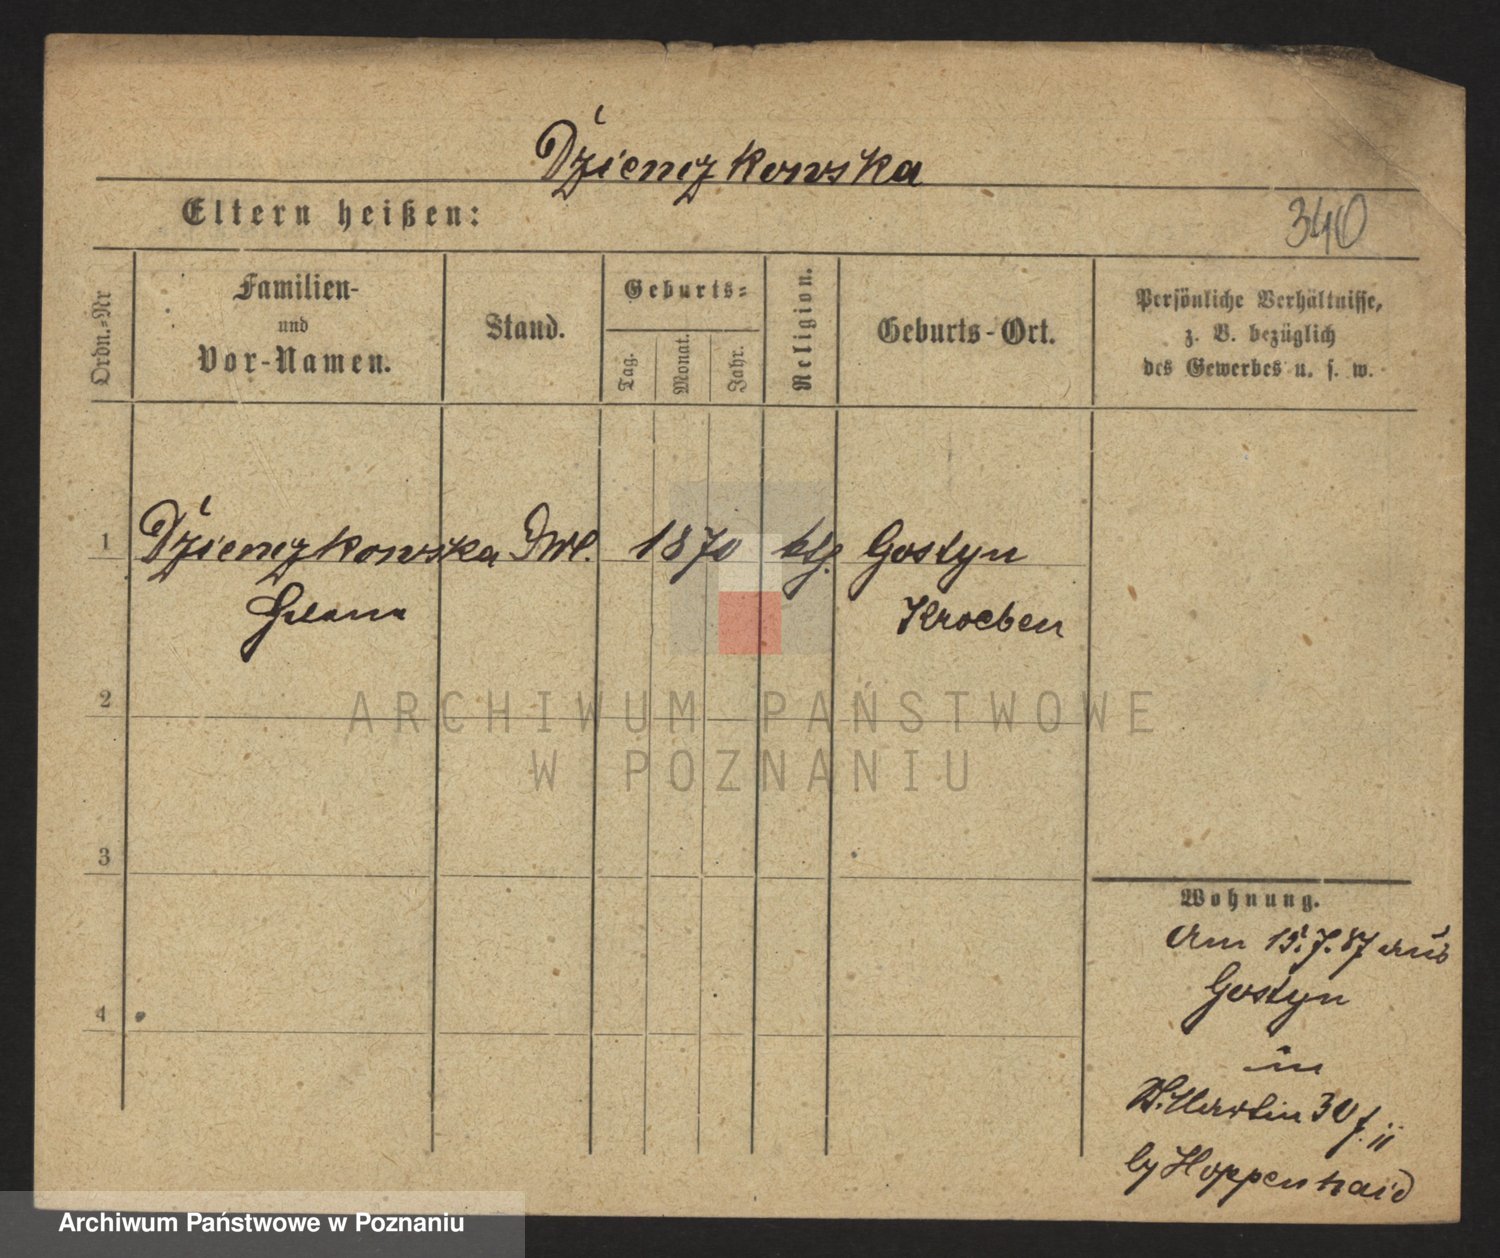 Dzienczkowska
Eltern heißen:
340
Ordn.=Nr
Familien-
und
Vor-Namen.
Stand.
Geburts=
Tag.
Monat.
Jahr.
Religion.
Geburts-Ort.
Persönliche Verhältnisse,
z. B. bezüglich
des Gewerbes u. s. w.
1 Dzienczkowska 1870 ktg. Gostyn
Kroeben
2
ARCHIWUM PAŃSTWOWE
W POZNANIU
3
4
Wohnung.
Am 15.7.87 aus
Gostyn
in
St. Martin 30
by Hoppenhaid
Archiwum Państwowe w Poznaniu